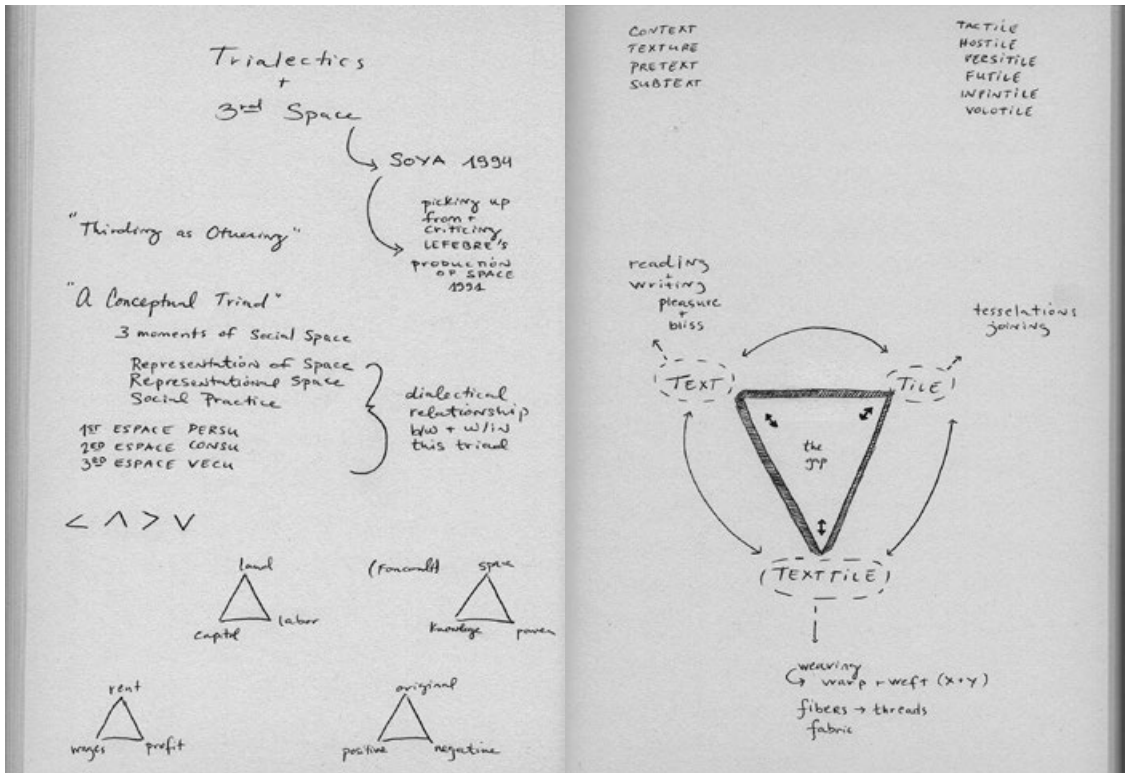 Trialectics
+
3rd Space
SOYA 1994
picking up
from +
criticing
LEFEBRE's
PRODUCTION
OF SPACE
1991
"Thirding as Othering"
"A Conceptual Triad"
3 moments of Social Space
Representation of Space
Representational Space
Social Practice
1ST ESPACE PERSU
2ED ESPACE CONSU
3ED ESPACE VECU
dialectical
relationship
b/w + w/in
this triad
< ∧ > ∨
land
capitol
labor
(Foucault)
space
Knowledge
power
rent
wages
profit
original
positive
negative
CONTEXT
TEXTURE
PRETEXT
SUBTEXT
TACTILE
HOSTILE
VERSITILE
FUTILE
INFINTILE
VOLOTILE
reading
+
writing
pleasure
+
bliss
tesselations
joining
TEXT
TILE
the
gap
(TEXTTILE)
weaving
warp + weft (x+y)
fibers → threads
fabric